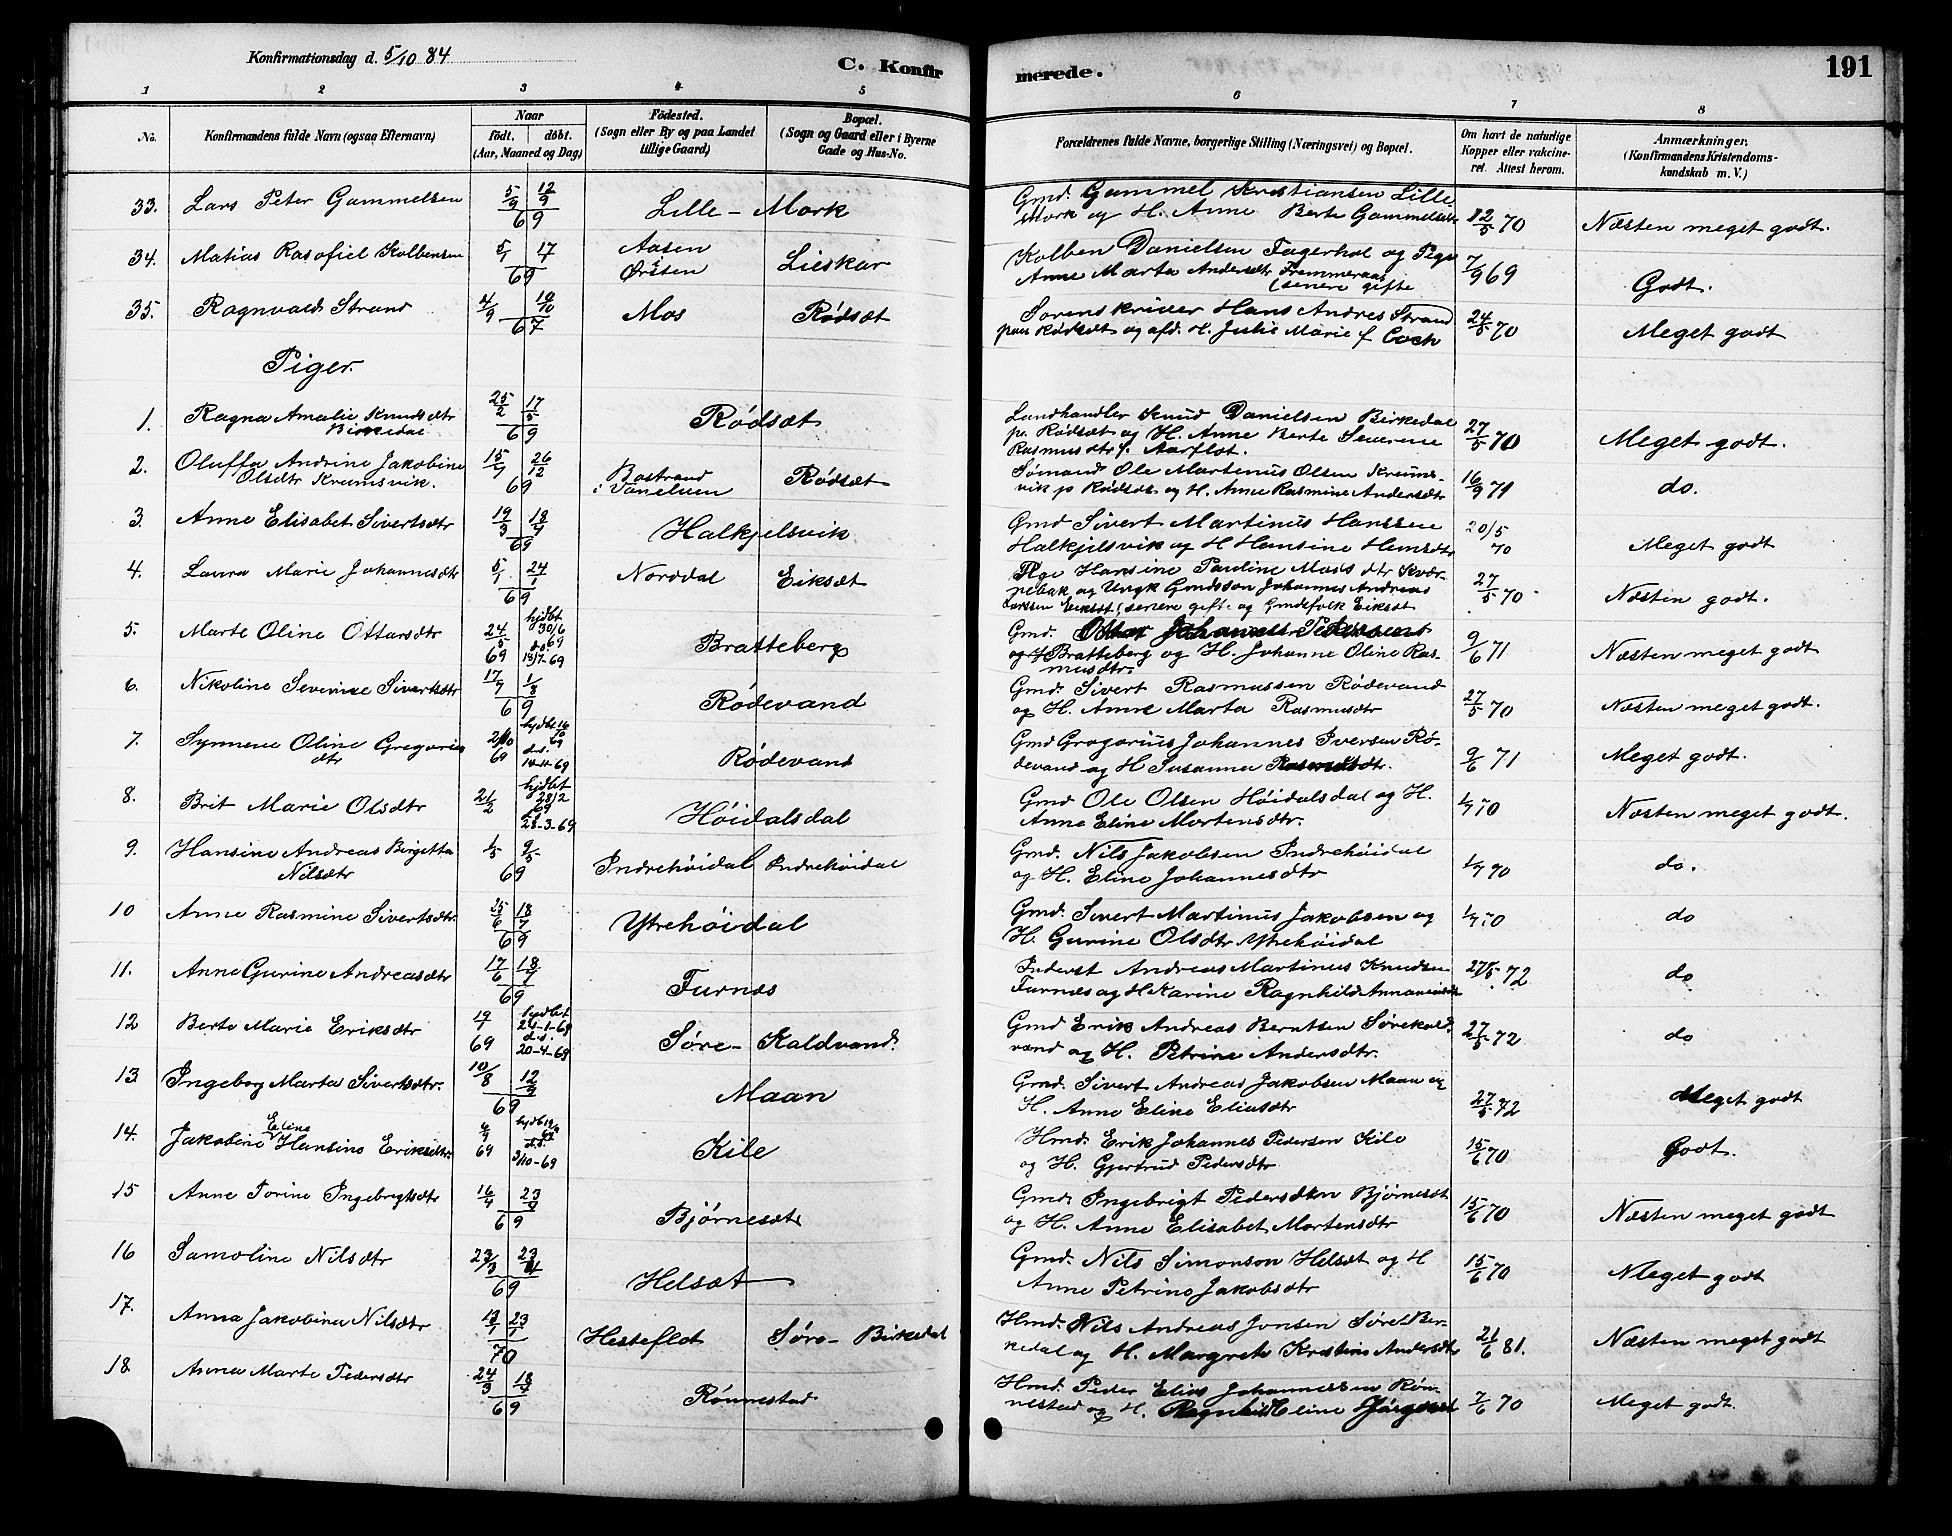 Konfirmationsdag d. 5/10 84
C. Konfirmerede.
191
1 2 3 4 5 6 7 8
No.
Konfirmandens fulde Navn (ogsaa Efternavn)
Naar
födt. döbt.
(Aar, Maaned og Dag)
Födested.
(Sogn eller By og paa Landet
tillige Gaard)
Bopæl.
(Sogn og Gaard eller i Byerne
Gade og Hus-No.
Forældrenes fulde Navne, borgerlige Stilling (Næringsvei) og Bopæl.
Om havt de naturlige
Kopper eller vakcine-
ret. Attest herom.
Anmærkninger.
(Konfirmandens Kristendoms-
kundskab m. V.)
33. Lars Peter Gammelsen 5/9 12/9 69 Lille - Mork Gmd. Gammel Kristiansen Lille
Mork og H. Anne Berte Gammelsdtr 12/5 70 Næsten meget godt.
34. Matias Rasofiel Kolbensen 5/1 17/ 69 Aasen Ørsten Lieskar Kolben Danielsen Fagerhol og Pige
Anne Marta Andersdtr Frammeraas (senere gifte 7/9 69 Godt.
35. Ragnvald Strand 4/9 10/10 67 Mos Rødsæt Sorenskriver Hans Andres Strand
paa Rødsæt og afd. H. Julie Marie f Coch 24/5 70 Meget godt
Piger.
1. Ragna Amalie Knudsdtr
Birkedal 25/2 17/5 69 Rødsæt Landhandler Knud Danielsen Birkedal
p. Rødsæt og H. Anne Berte Severene
Rasmusdtr f. Aarflot. 27/5 70 Meget godt.
2. Oluffa Andrine Jakobine
Olsdtr Krumsvik. 15/9 26/12 69 Bostrand
i Vanelven Rødsæt Sømand Ole Martinus Olsen Krums-
vik p Rødsæt og H. Anne Rasmine Andersdtr 16/9 71 do.
3. Anne Elisabet Sivertsdtr 19/3 18/4 69 Halkjelsvik Gmd Sivert Martinus Hanssen
Halkjelsvik og H Hansine Hansdtr 20/5 70 Meget godt
4. Laura Marie Johannesdtr 5/1 24/1 69 Norddal Eiksæt Pige Hansine Pauline Masdtr
og Ungk Gmdssøn Johannes Andreas
Larssen Eiksæt, senere gift og Gmdsfolk Eiksæt 27/5 70 Næsten godt.
5. Marte Oline Ottarsdtr 24/5 69 hjdbt 30/6 69 18/7-69 Bratteberg Gmd. Ottar Johannes Pedersen
Bratteberg og H. Johanne Oline Ras-
musdtr. 9/6 71 Næsten meget godt
6. Nikoline Severine Sivertsdtr 17/7 1/8 69 Rødevand Gmd. Sivert Rasmussen Rødevand
og H. Anne Marta Rasmusdtr 27/5 70 Næsten meget godt.
7. Synneve Oline Gregorius
dtr 2/10 69 hjdbt 16/10 69 d.s. 14-11-69 Rødevand Gmd Gregorius Johannes Iversen Rø-
devand og H Susanna Rasmusdtr. 9/6 71 Meget godt.
8. Brit Marie Olsdtr 21/2 hjdbt 28/2 69 28-3-69 Höidalsdal Gmd Ole Olsen Höidalsdal og H.
Anne Eline Mortensdtr. 1/7 70 Næsten meget godt.
9. Hansine Andreas Bergetta
Nilsdtr 1/5 9/5 69 Indrehöidal Indrehöidal Gmd. Nils Jakobsen Indrehöidal
og H. Eline Johannesdtr 1/7 70 do.
10 Anne Rasmine Sivertsdtr 25/6 18/7 69 Ytrehöidal Gmd. Sivert Martinus Jakobsen og
H. Gurine Olsdtr Ytrehöidal 1/7 70 do
11. Anne Gurine Andreasdtr 17/6 18/7 69 Furnæs Inderst Andreas Martinus Knudsen
Furnæs og H Karine Ragnhild 27/5 72 do
12 Berte Marie Eriksdtr 19/1 69 hjdbt 24-1-69 d.s. 20-4-69 Søre - Kaldvand. Gmd Erik Andreas Berntsen Sørekald-
vand og H. Petrine Andersdtr. 27/5 72 do
13 Ingeborg Marta Sivertsdtr. 10/8 12/9 69 Maan Gmd. Sivert Andreas Jakobsen Maan og
H. Anne Eline Eliasdtr 27/5 72 Meget godt
14. Jakobine Eline Hansine Eriksdtr. 69 d.s. 3/10-69 Kile Hmd. Erik Johannes Pedersen Kile
og H. Gjertrud Pedersdtr 15/6 70 Godt.
15 Anne Torine Ingebrigtsdtr 16/4 23/ 69 Bjørnesæt Gmd. Ingebrigt Pedersen Bjørnesæt
og H. Anne Elisabet Mortensdtr 15/6 70 Næsten meget godt
16 Samoline Nilsdtr 23/3 23/4 69 Helsæt Gmd. Nils Simonson Helsæt og H
Anne Petrine Jakobsdtr 15/6 70 Meget godt
17. Anna Jakobina Nilsdtr 13/1 23/1 70 Hesteflot Søre - Birkedal Hmd. Nils Andreas Jonsen Søre Bir-
kedal og H. Margrete Kristine Andersdtr 21/6 81. Næsten meget godt
18 Anna Marte Pedersdtr 24/3 18/4 69 Rönnestad Hmd. Peder Elias Johannessen Røn-
nestad og H. Ragnhild Eline 7/6 70 Meget godt.